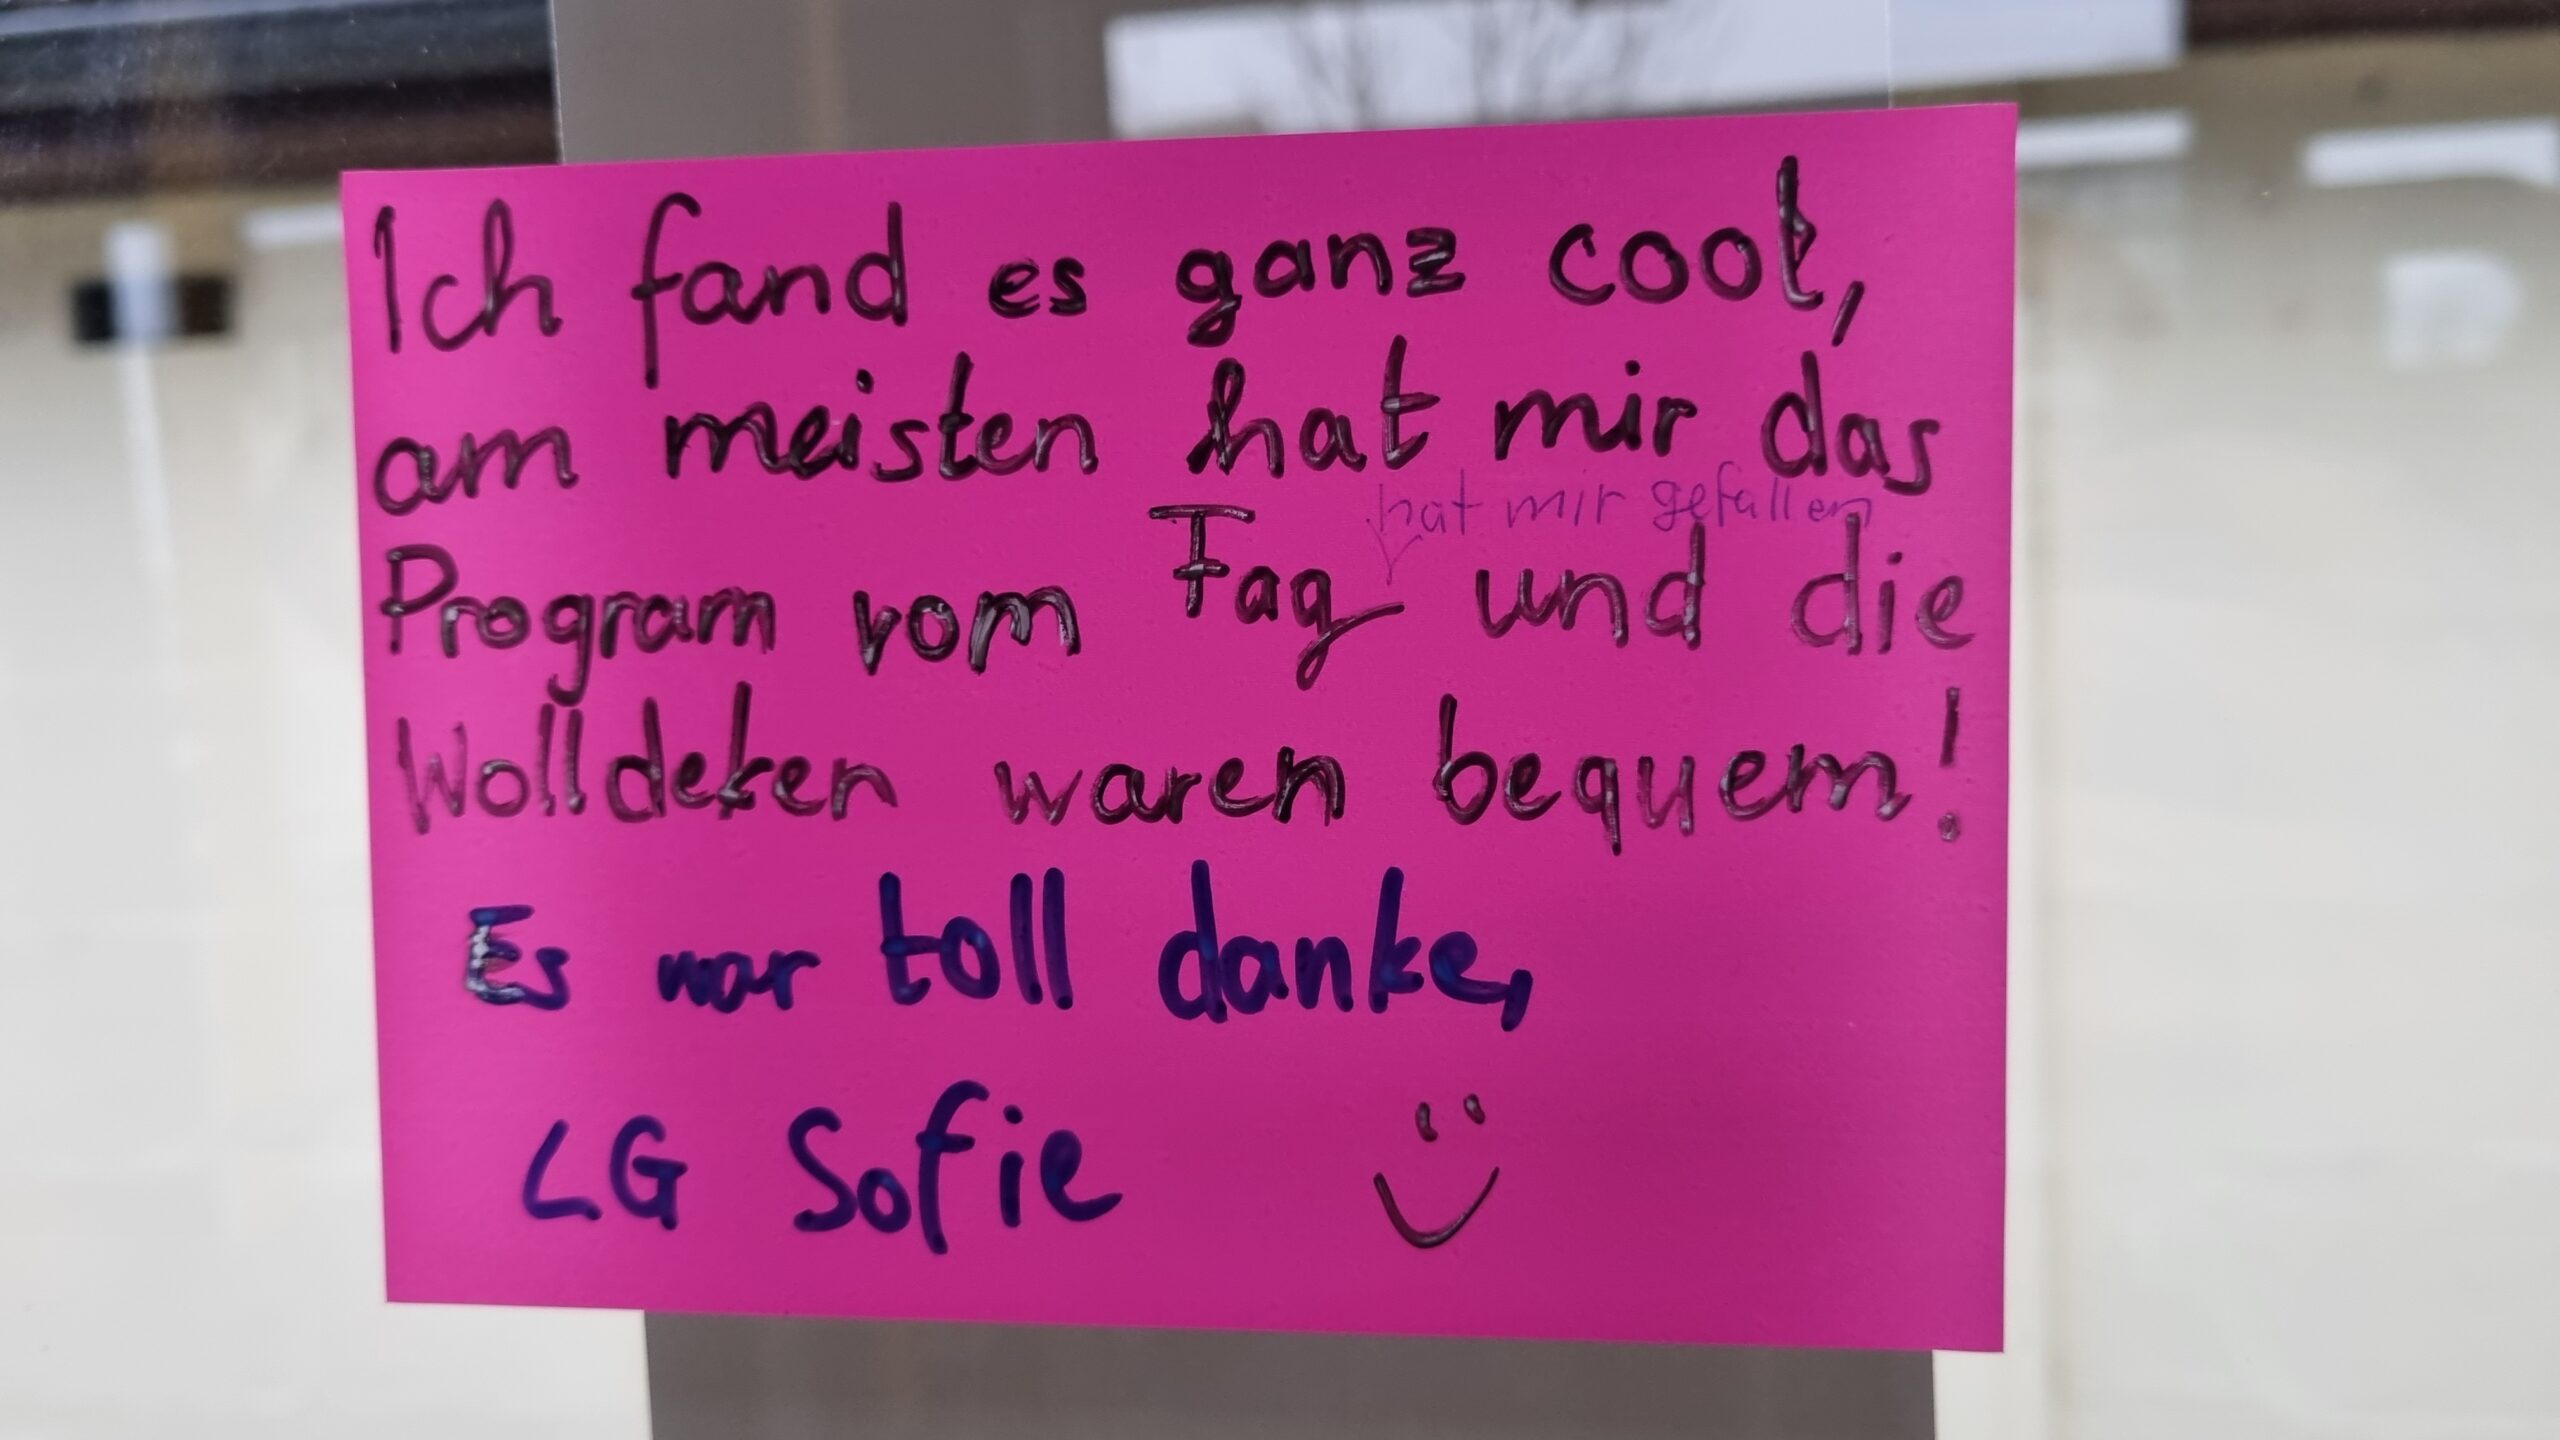 Ich fand es ganz cool,
am meisten hat mir das
hat mir gefallen
Program vom Tag und die
Wolldeken waren bequem!
Es war toll danke,
LG Sofie